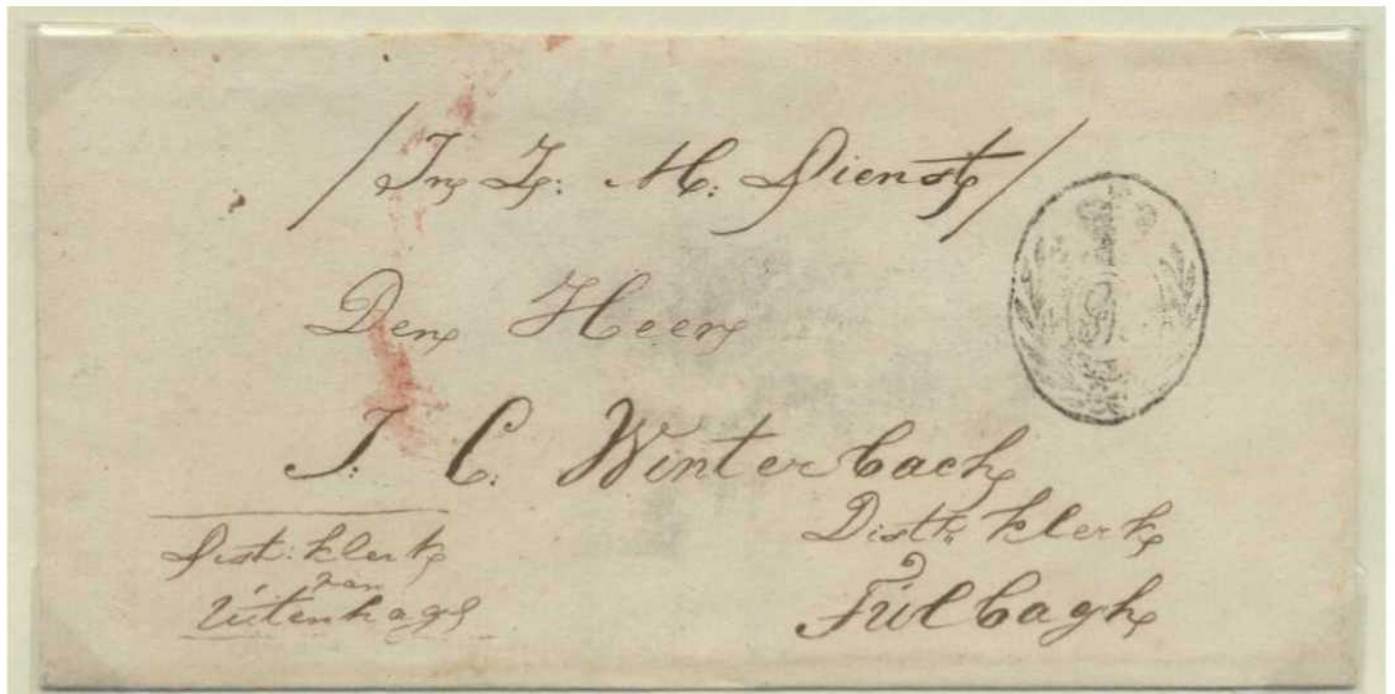 /In Z: M: Dienst/
Den Heer
J: C: Winterbach
Distk: klerk
Tulbagh
Dist: klerk
van
Uitenhage